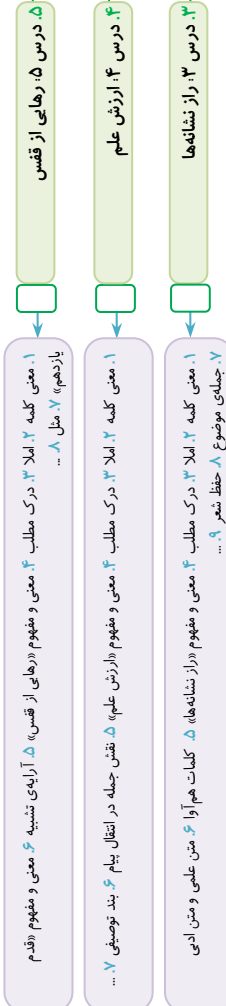 ۳. درس ۳: راز نشانه‌ها
۱. معنی کلمه ۲. املا ۳. درک مطلب ۴. معنی و مفهوم «راز نشانه‌ها» ۵. کلمات هم‌آوا ۶. متن علمی و متن ادبی
۷. جمله‌ی موضوع ۸. حفظ شعر ۹. ...
۴. درس ۴: ارزش علم
۱. معنی کلمه ۲. املا ۳. درک مطلب ۴. معنی و مفهوم «ارزش علم» ۵. نقش جمله در انتقال پیام ۶. بند توصیفی ۷. ...
۵. درس ۵: رهایی از قفس
۱. معنی کلمه ۲. املا ۳. درک مطلب ۴. معنی و مفهوم «رهایی از قفس» ۵. آرایه‌ی تشبیه ۶. معنی و مفهوم «قدم
یازدهم» ۷. مثل ۸. ...